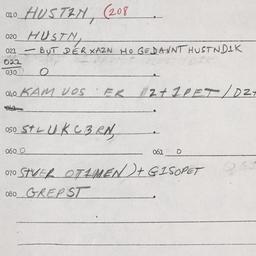 010 HUSTZN, (208
020 HUSTN,
021 — BUT DER XAZN HO GEDAVNT HUSTNDIK
022
030 O
040 KAM VOS ER 2+1PET/D2+
050 S+LUKC3RN,
060 O 061 O
070 S+VER OTIMEN)+ GISOPET
080 GREPST